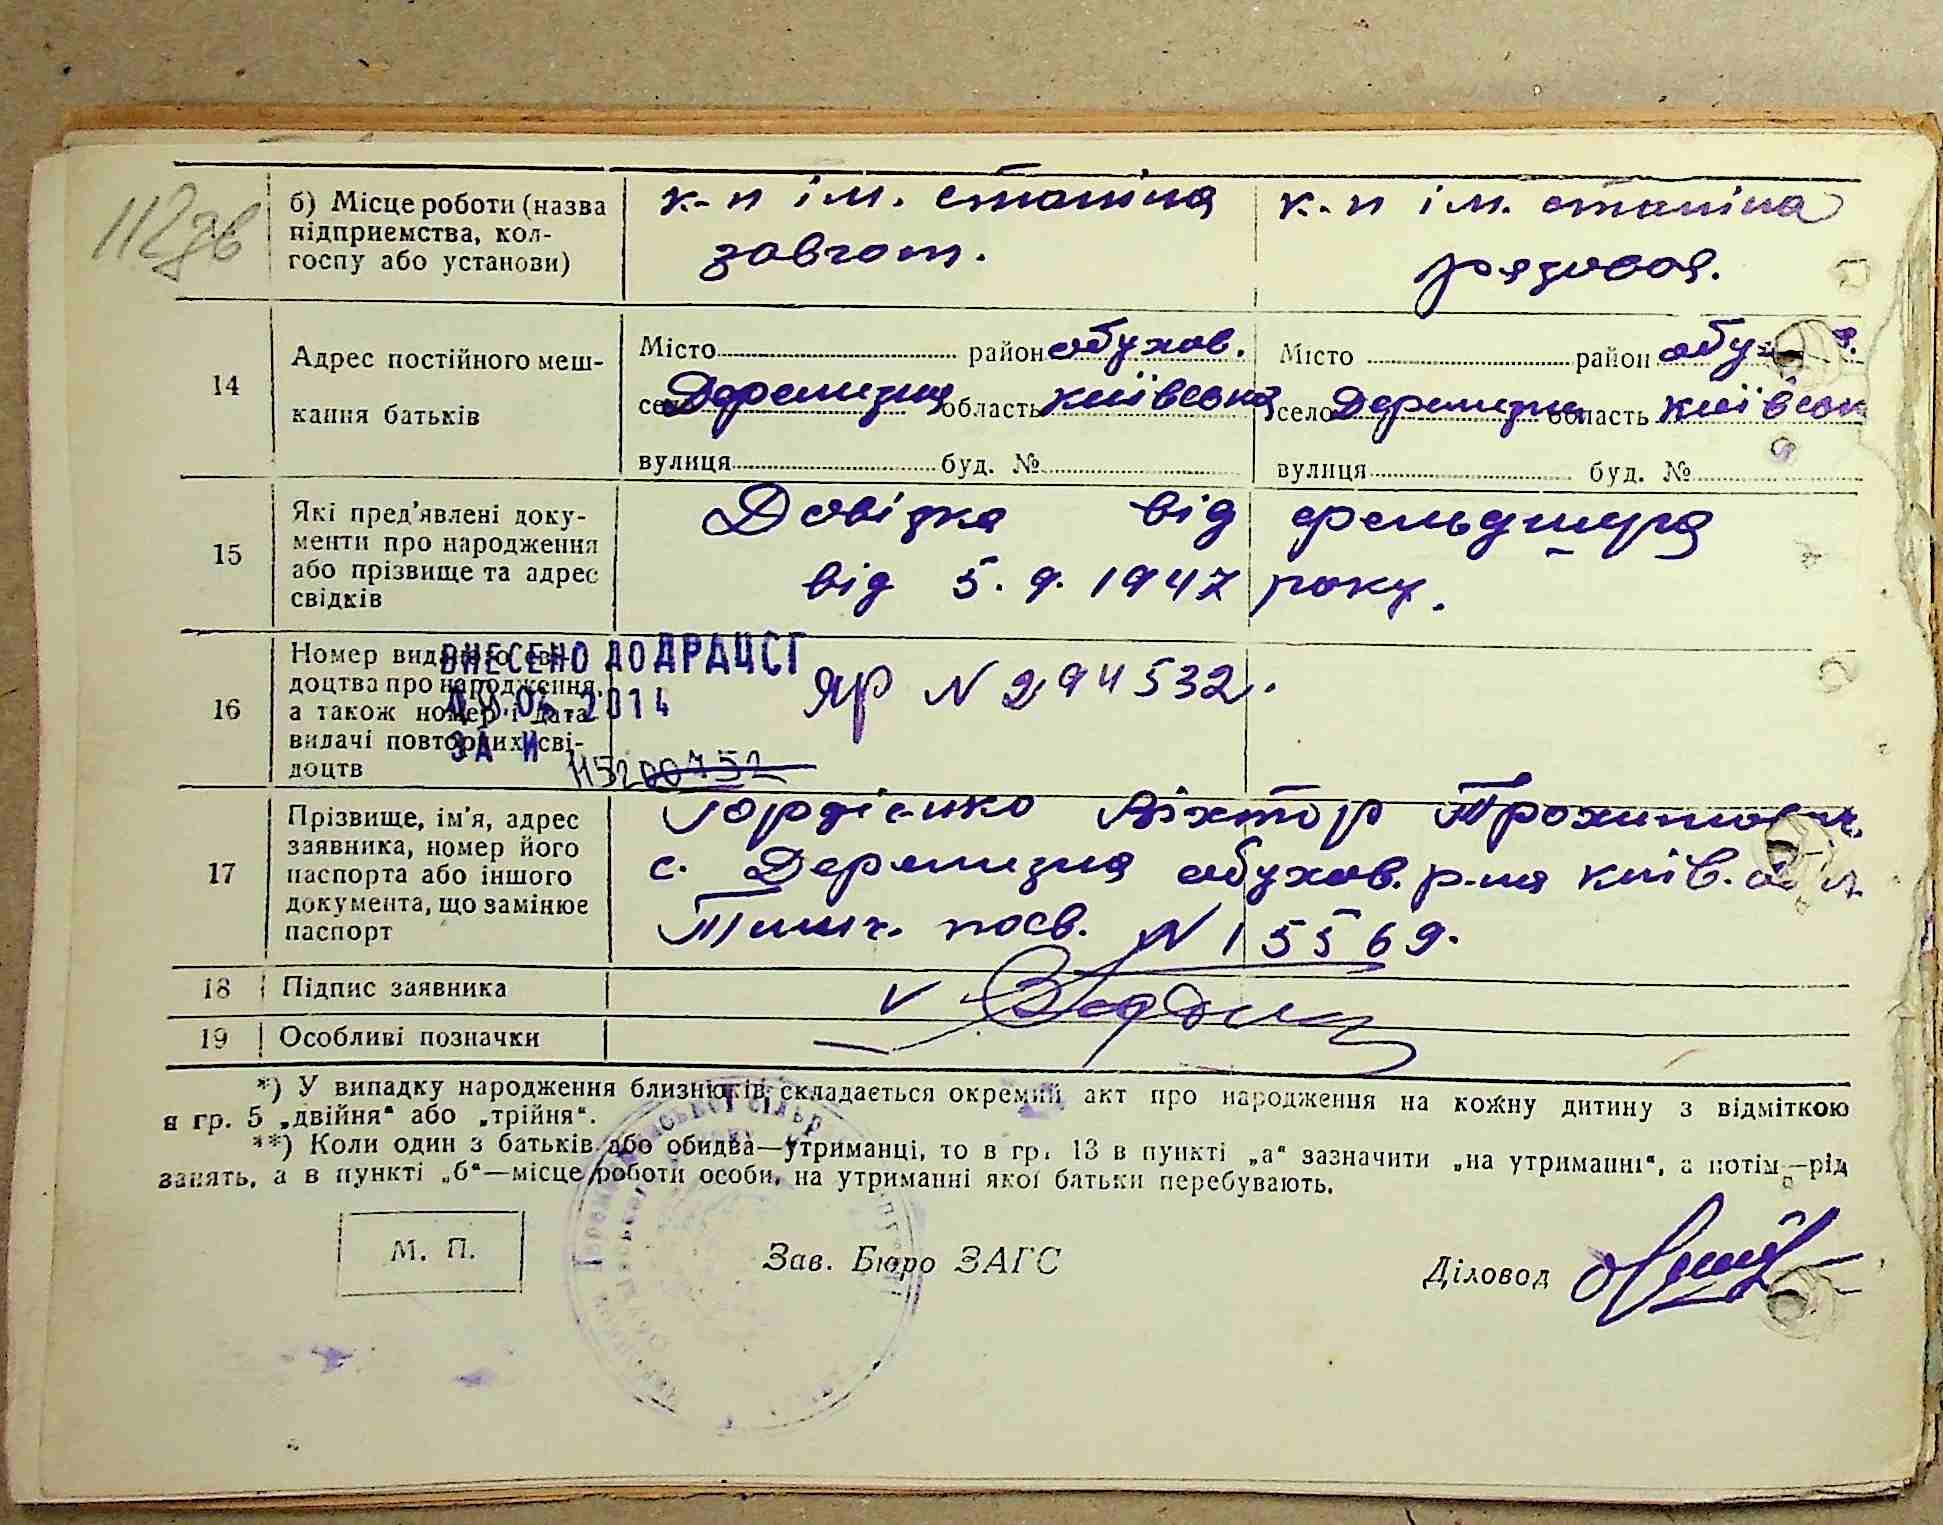 112зв
б) Місце роботи (назва підприємства, колгоспу або установи)
к-п ім. сталіна
завгосп.
к-п ім. сталіна
рядова.
14
Адрес постійного меш-
кання батьків
Місто район обухов.
село Деремезна область київська
вулиця буд. №
Місто район обухов.
село Деремезна область київськ
вулиця буд. №
15
Які пред'явлені доку-
менти про народження
або прізвище та адрес
свідків
Довідка від фельдшера
від 5. 9. 1947 року.
16
Номер виданого сві-
доцтва про народження,
а також номер і дата
видачі повторних сві-
доцтв
ВНЕСЕНО ДО ДРАЦСГ
04.2014
ЗА №
ЯР N 294532.
17
Прізвище, ім'я, адрес
заявника, номер його
паспорта або іншого
документа, що замінює
паспорт
Гордієнко Віктор Трохимович.
с. Деремезна обухов. р-на київ. обл.
Тимч. посв. N 15569.
18
Підпис заявника
v
19
Особливі позначки
*) У випадку народження близнюків складається окремий акт про народження на кожну дитину з відміткою
в гр. 5 „двійня“ або „трійня“.
**) Коли один з батьків або обидва—утриманці, то в гр. 13 в пункті „а“ зазначити „на утриманні“, а потім—рід
занять, а в пункті „б“—місце роботи особи, на утриманні якої батьки перебувають.
М. П.
Зав. Бюро ЗАГС
Діловод